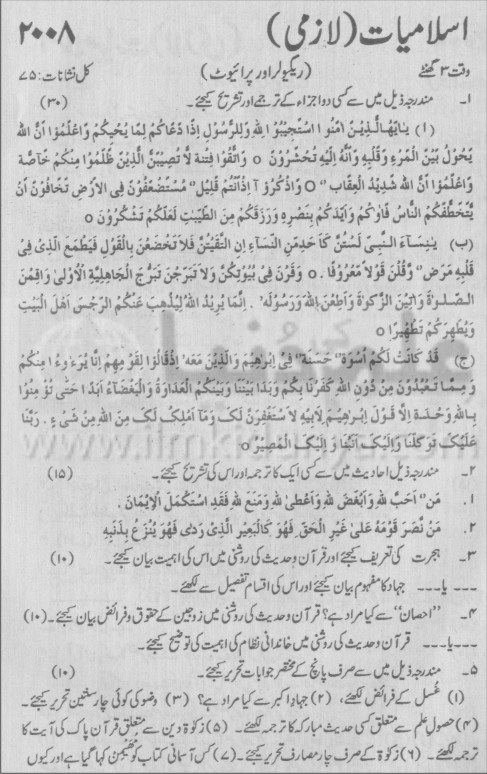 اسلامیات (لازمی) ۲۰۰۸
وقت ۳ گھنٹے (ریگولر اور پرائیوٹ) کل نشانات: ۷۵
۱۔ مندرجہ ذیل میں سے کسی دو اجزاء کے ترجمے اور تشریح کیجئے۔ (۳۰)
(ا) یٰایھا الذین امنوا استجیبوا للہ وللرسول اذا دعاکم لما یحییکم واعلموا ان اللہ
یحول بین المرء وقلبہ وانہ الیہ تحشرون ○ واتقوا فتنة لا تصیبن الذین ظلموا منکم خاصة
واعلموا ان اللہ شدید العقاب ○ واذکروا اذ انتم قلیل مستضعفون فی الارض تخافون ان
یتخطفکم الناس فاوٰکم وایدکم بنصرہ ورزقکم من الطیبٰت لعلکم تشکرون ○
(ب) ینساء النبی لستن کاحد من النساء ان اتقیتن فلا تخضعن بالقول فیطمع الذی فی
قلبہ مرض وقلن قولا معروفا ○ وقرن فی بیوتکن ولا تبرجن تبرج الجاھلیة الاولی واقمن
الصلوٰة واٰتین الزکوٰة واطعن اللہ ورسولہ، انما یرید اللہ لیذھب عنکم الرجس اھل البیت
ویطھرکم تطھیرا ○
(ج) قد کانت لکم اسوة حسنة فی ابرٰھیم والذین معہ اذ قالوا لقومھم انا برءٰؤا منکم
ومما تعبدون من دون اللہ کفرنا بکم وبدا بیننا وبینکم العداوة والبغضاء ابدا حتی تؤمنوا
باللہ وحدہ الا قول ابرٰھیم لابیہ لاستغفرن لک وما املک لک من اللہ من شیء . ربنا
علیک توکلنا والیک انبنا والیک المصیر ○
۲۔ مندرجہ ذیل احادیث میں سے کسی ایک کا ترجمہ اور اس کی تشریح کیجئے۔ (۱۵)
۱. من احب للہ وابغض للہ واعطی للہ ومنع للہ فقد استکمل الایمان.
۲. من نصر قومہ علی غیر الحق فھو کالبعیر الذی ردی فھو ینزع بذنبہ
۳۔ ہجرت کی تعریف کیجئے اور قرآن و حدیث کی روشنی میں اس کی اہمیت بیان کیجئے۔ (۱۰)
۔۔۔یا۔۔۔ جہاد کا مفہوم بیان کیجئے اور اس کی اقسام تفصیل سے لکھئے۔
۴۔ ”احسان“ سے کیا مراد ہے؟ قرآن و حدیث کی روشنی میں زوجین کے حقوق و فرائض بیان کیجئے۔ (۱۰)
۔۔۔یا۔۔۔ قرآن و حدیث کی روشنی میں خاندانی نظام کی اہمیت کی توضیح کیجئے۔
۵۔ مندرجہ ذیل میں سے صرف پانچ کے مختصر جوابات تحریر کیجئے۔ (۱۰)
(۱) غسل کے فرائض لکھئے، (۲) جہاد اکبر سے کیا مراد ہے؟ (۳) وضو کی کوئی چار سنتیں تحریر کیجئے۔
(۴) حصول علم سے متعلق کسی حدیث مبارکہ کا ترجمہ لکھئے۔ (۵) زکوٰة دین سے متعلق قرآن پاک کی آیت کا
ترجمہ لکھئے۔ (۶) زکوٰة کے صرف چار مصارف تحریر کیجئے۔ (۷) کس آسمانی کتاب کو مہیمن کہا گیا ہے اور کیوں